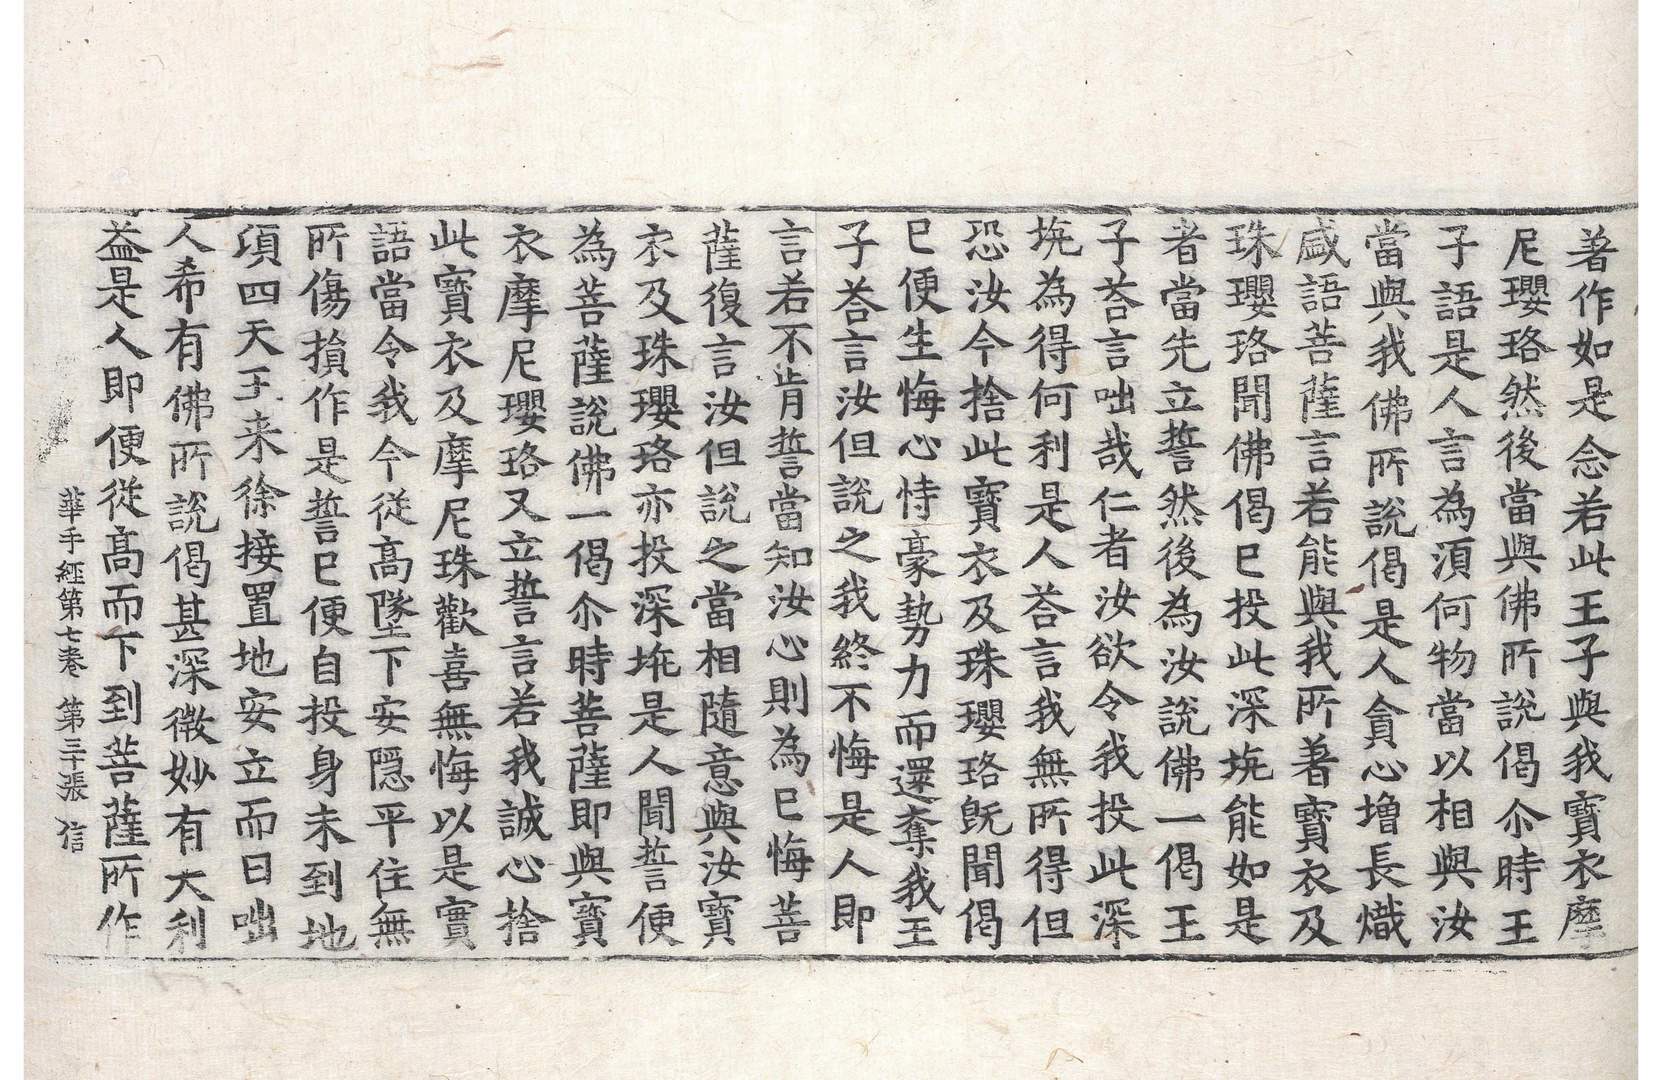 著作如是念若此王子與我寳衣摩
尼瓔珞然後當與佛所說偈尒時王
子語是人言為湏何物當以相與汝
當與我佛所說偈是人貪心增長熾
咸語菩薩言若能與我所著寳衣及
珠瓔珞聞佛偈已投此深坑能如是
者當先立誓然後為汝說佛一偈王
子荅言咄哉仁者汝欲令我投此深
坑為得何利是人荅言我無所得但
恐汝今捨此寳衣及珠瓔珞旣聞偈
已便生悔心恃豪勢力而還奪我王
子荅言汝但說之我終不悔是人即
言若不肯誓當知汝心則為已悔菩
薩復言汝但說之當相隨意與汝寳
衣及珠瓔珞亦投深坑是人聞誓便
為菩薩說佛一偈尒時菩薩即與寳
衣摩尼瓔珞又立誓言若我誠心捨
此寳衣及摩尼珠歡喜無悔以是實
語當令我今從高墜下安隠平住無
所傷損作是誓已便自投身未到地
湏四天王来徐接置地安立而日咄
人希有佛所說偈甚深微妙有大利
益是人即便從髙而下到菩薩所作
華手經第七卷 第三十張 信